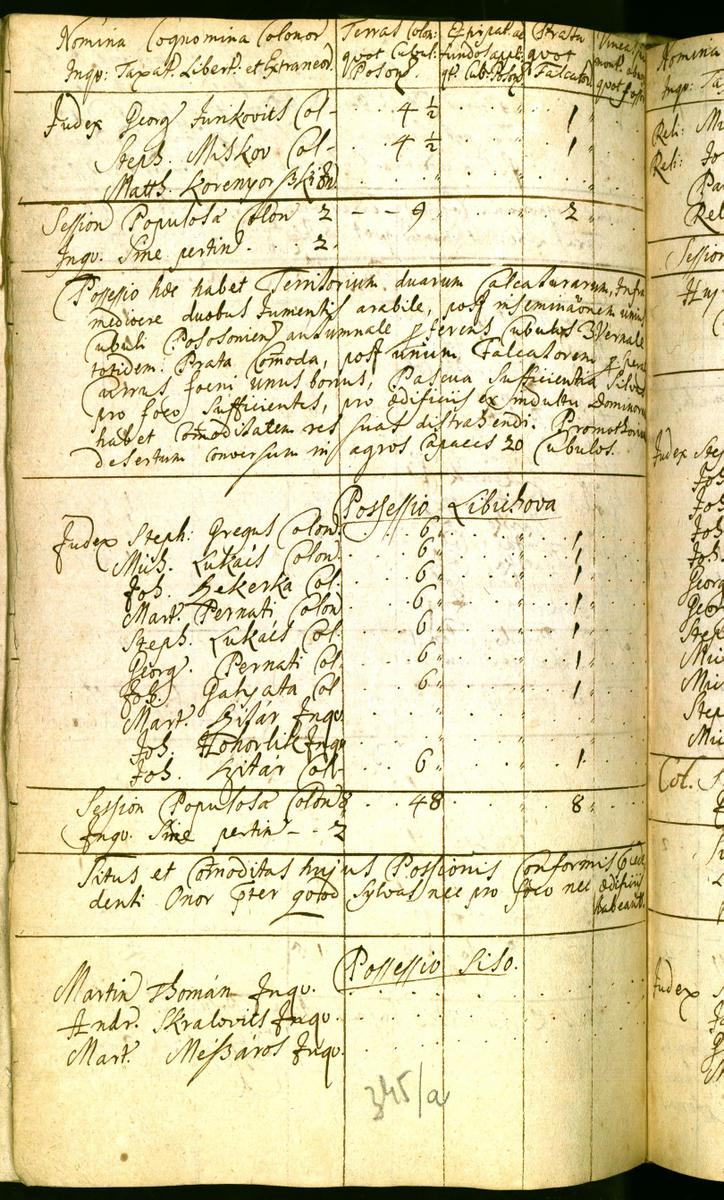 Nomina Cognomina Colonor
Inqu: Taxat. Libert. et Extraneor.
Terras Colon:
quot Cubul:
Poson.
fundos appt:
qt. Cub. Poson
Prata
quot
Falcator
Vineas
quot foss
Judex Georg Junkovits Col- 4 ½ 1
Steph. Miskov Col- 4 ½ 1
Matth. Korenyor
Session Populosa Colon 2 - - 9 2
Inqu. Sine pertin. 2
Possessio haec habet Territorium duarum Calcaturarum, Infra
mediocre duobus Jumentis arabile, post inseminaonem unius
Cubuli Posonien autumnale p ferens Cubulos 3 Vernale
totidem. Prata Comoda, post unium Falcatorem
Currus foeni unus bonus, Pascua Sufficientia Silvas
pro foco Sufficientes, pro aedificiis ex indultu Dominorum
habet Comoditatem res suas distrahendi. Promothorium
desertum conversum in agros Capaces 20 Cubulos.
Possessio Libichova
Judex Steph: Gregus Colon 6 1
Mich. Lukáis Colon 6 1
Joh. Bekerka Col. 6 1
Mart. Pernati Colon 6 1
Steph. Lukáis Col. 6 1
Georg. Pernati Col 6 1
Joh. Gahyata Col 6 1
Mart. Inqu.
Joh. Hohorlik Inqu
Joh. Col- 6 1
Session Populosa Colon 8 48 8
Inqu. Sine pertin - - 2
Situs et Comoditas hujus Possionis Conformis Prece
denti Onor pter quod Sylvas nec pro foco nec aedificiis
habeant.
Possessio Siso.
Martin Thomán Inqu.
Andr. Skralovits Inqu.
Mart. Meszáros Inqu.
345/a
Nomina
Inqu: Ta
Reli: Mi
Reli: Jo
Pa
Rel
Session
Judex Step
Joh.
Joh.
Joh.
Joh.
Georg
Georg
Step
Mic
Mic
Step
Mic
Col.
Judex